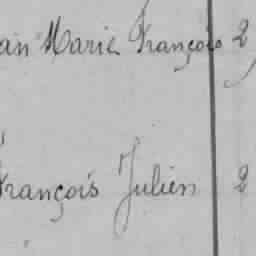 an Marie François 2
François Julien 2